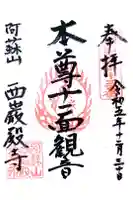 奉拝
令和五年十二月三十日
本尊十一面観音
阿蘇山
西巌殿寺